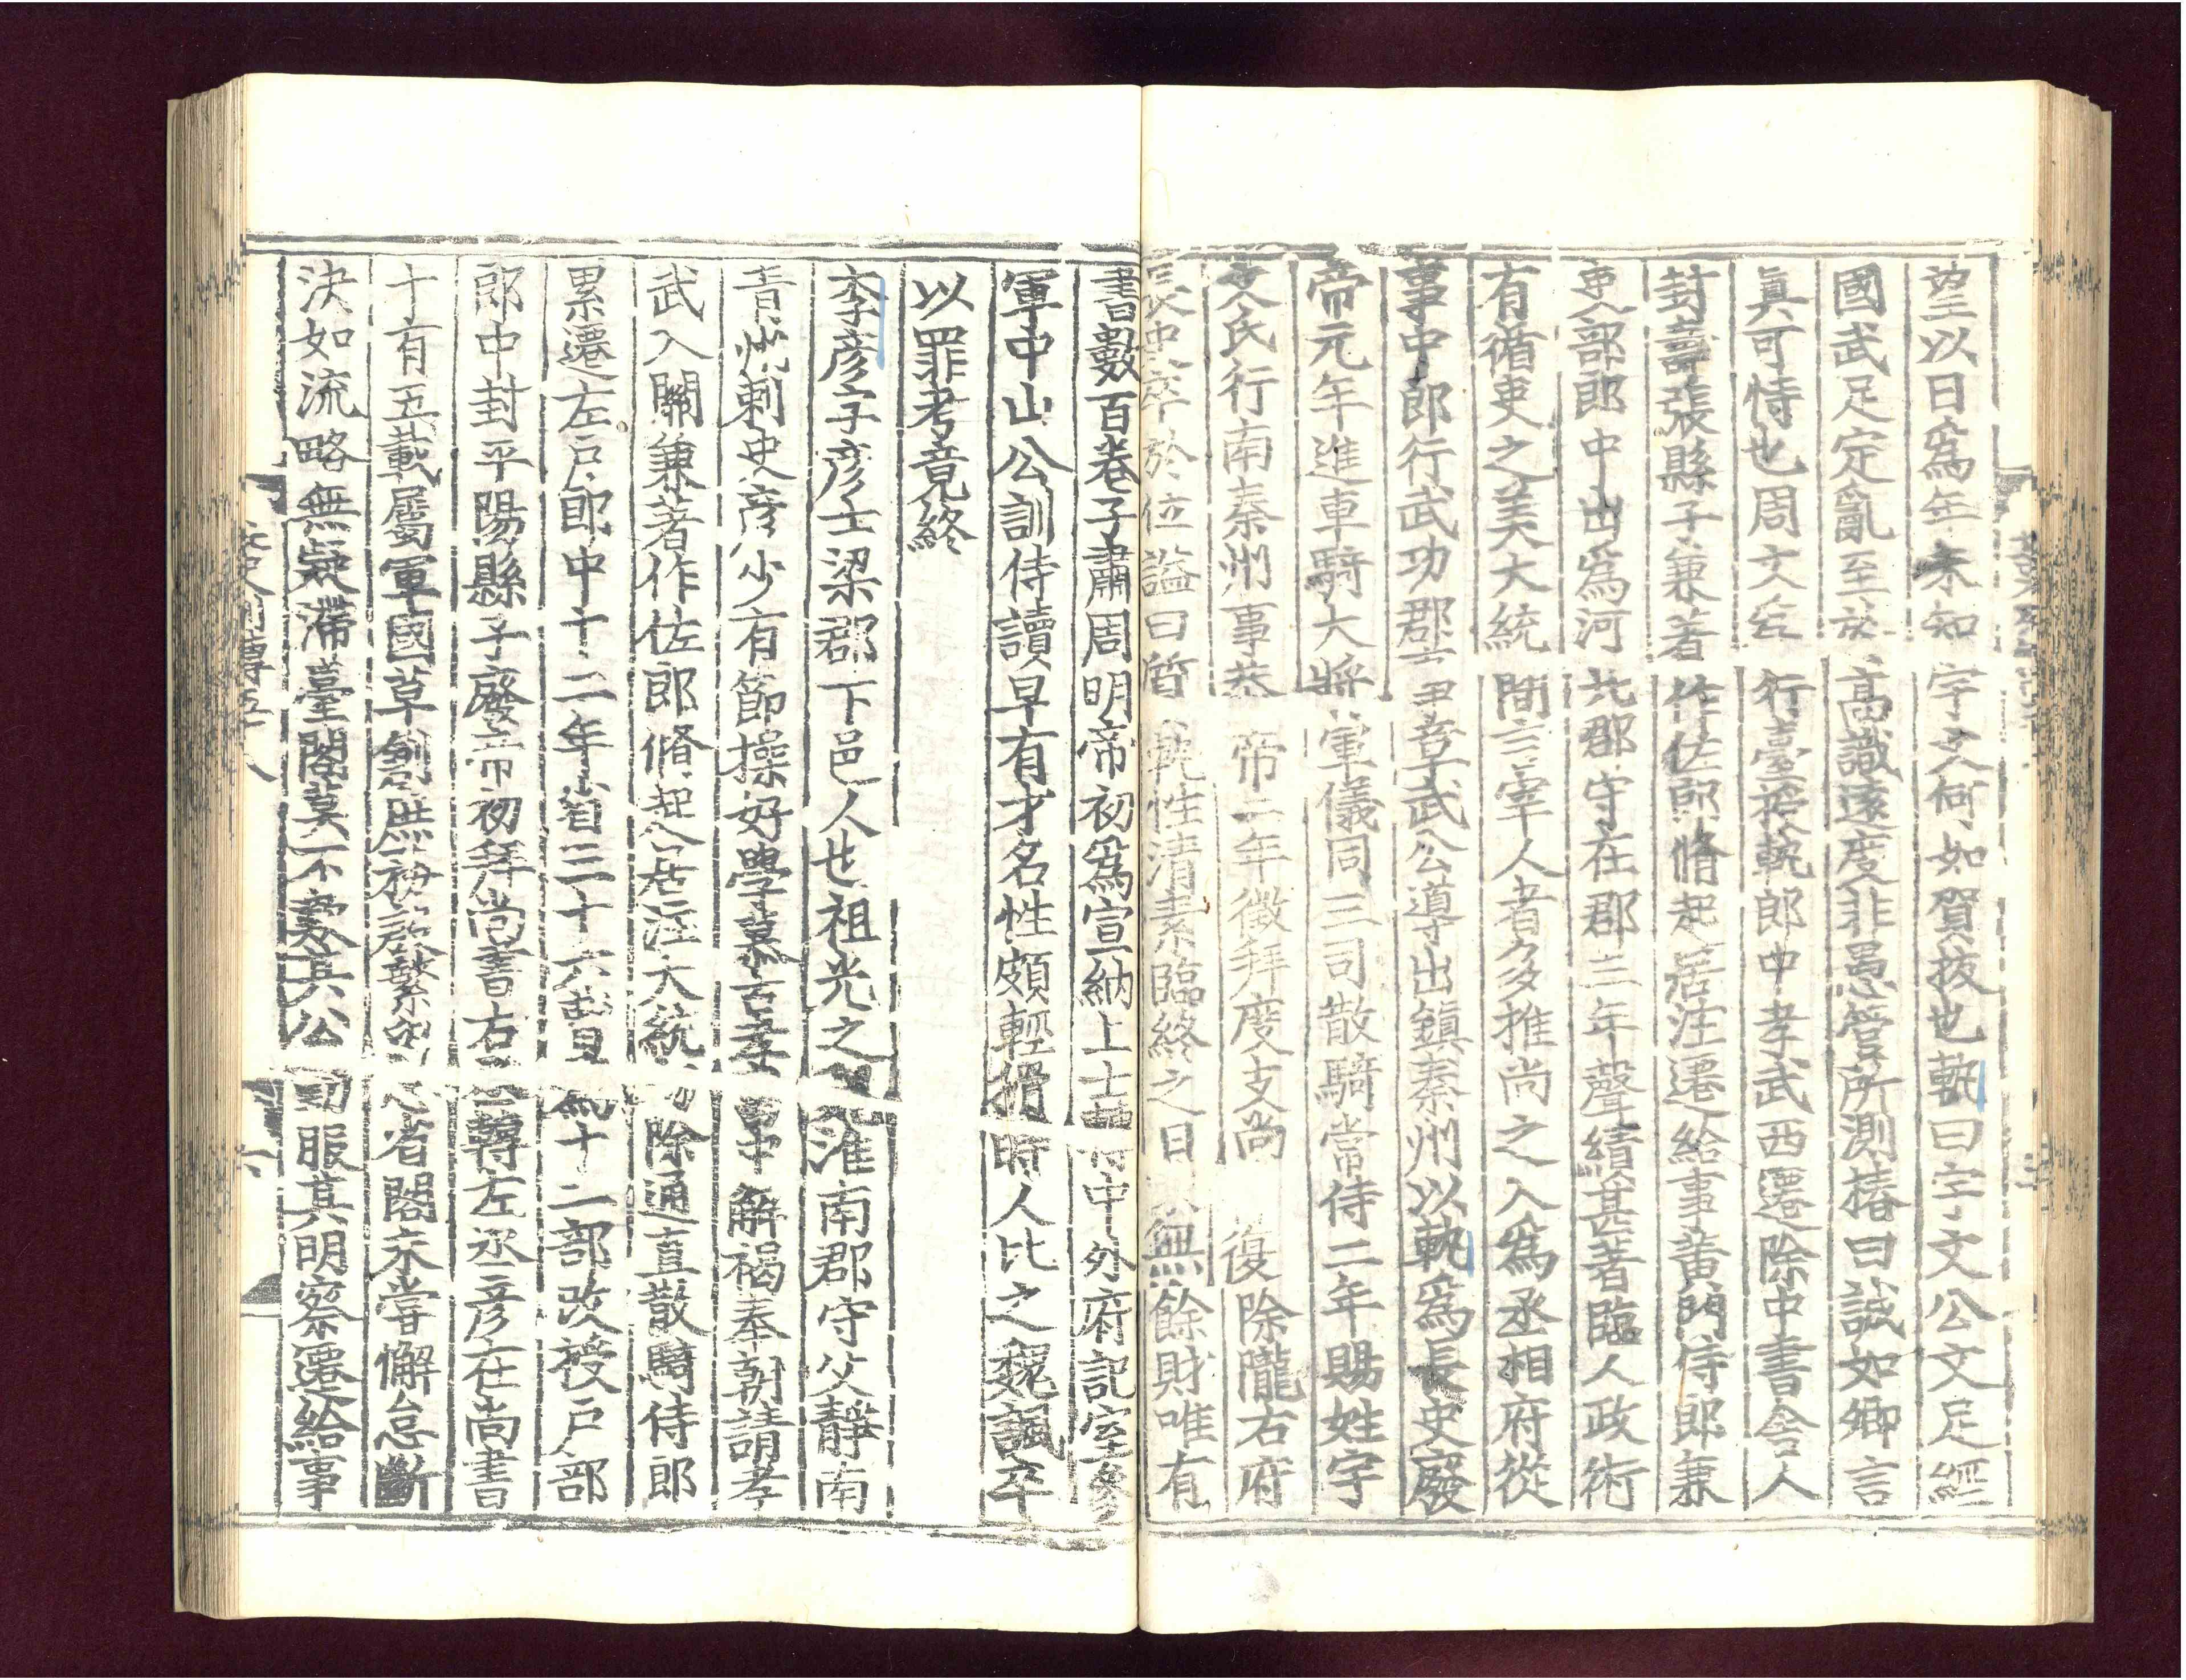 望以日爲年未知字文何如賀拔也執曰宇文公文足經
國武足定亂至於高識遠度非愚管所測椿曰誠如卿言
眞可恃也周文公行臺授執郎中孝武西遷除中書舍人
封壽張縣子兼著作佐郎脩起居注遷給事黃門侍郎兼
吏部郎中出爲河北郡守在郡三年聲績甚著臨人政術
有循吏之美大統間言宰人者多推尚之入爲丞相府從
事中郎行武功郡事章武公導出鎮秦州以執爲長史廢
帝元年進車騎大將軍儀同三司散騎常侍二年賜姓宇
文氏行南秦州事恭帝二年徵拜度支尚復除隴右府
長史卒於位謚曰質執性清素臨終之日無餘財唯有
書數百卷子肅周明帝初爲宣納上士轉中外府記室參
軍中山公訓侍讀早有才名性頗輕猾時人比之魏諷卒
以罪考竟終
李彥字彥士梁郡下邑人也祖光之淮南郡守父靜南
青州刺史彥少有節操好學慕古孝昌中解褐奉朝請孝
武入關兼著作佐郎脩起居注大統初除通直散騎侍郎
累遷左戶郎中十二年省三十六曹爲十二部改授戶部
郎中封平陽縣子廢帝初拜尚書右丞轉左丞彥在尚書
十有五載屬軍國草創庶務殷繁留心省閣未嘗懈怠斷
決如流略無疑滯臺閣莫不歎其公勤服其明察遷給事
史列傳五十八
六